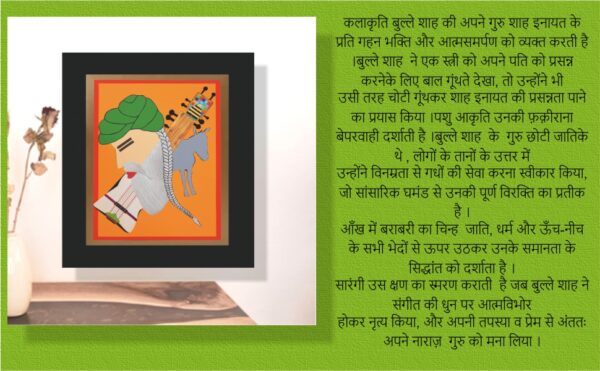 कलाकृति बुल्ले शाह की अपने गुरु शाह इनायत के
प्रति गहन भक्ति और आत्मसमर्पण को व्यक्त करती है
।बुल्ले शाह ने एक स्त्री को अपने पति को प्रसन्न
करनेके लिए बाल गूंथते देखा, तो उन्होंने भी
उसी तरह चोटी गूंथकर शाह इनायत की प्रसन्नता पाने
का प्रयास किया ।पशु आकृति उनकी फ़क़ीराना
बेपरवाही दर्शाती है ।बुल्ले शाह के गुरु छोटी जातिके
थे , लोगों के तानों के उत्तर में
उन्होंने विनम्रता से गधों की सेवा करना स्वीकार किया,
जो सांसारिक घमंड से उनकी पूर्ण विरक्ति का प्रतीक
है ।
आँख में बराबरी का चिन्ह जाति, धर्म और ऊँच-नीच
के सभी भेदों से ऊपर उठकर उनके समानता के
सिद्धांत को दर्शाता है ।
सारंगी उस क्षण का स्मरण कराती है जब बुल्ले शाह ने
संगीत की धुन पर आत्मविभोर
होकर नृत्य किया, और अपनी तपस्या व प्रेम से अंततः
अपने नाराज़ गुरु को मना लिया ।